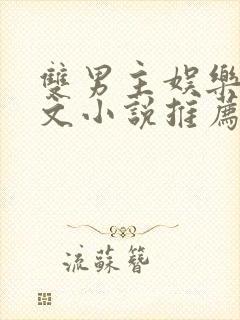 雙男主娛樂
文小說推薦
流蘇簪